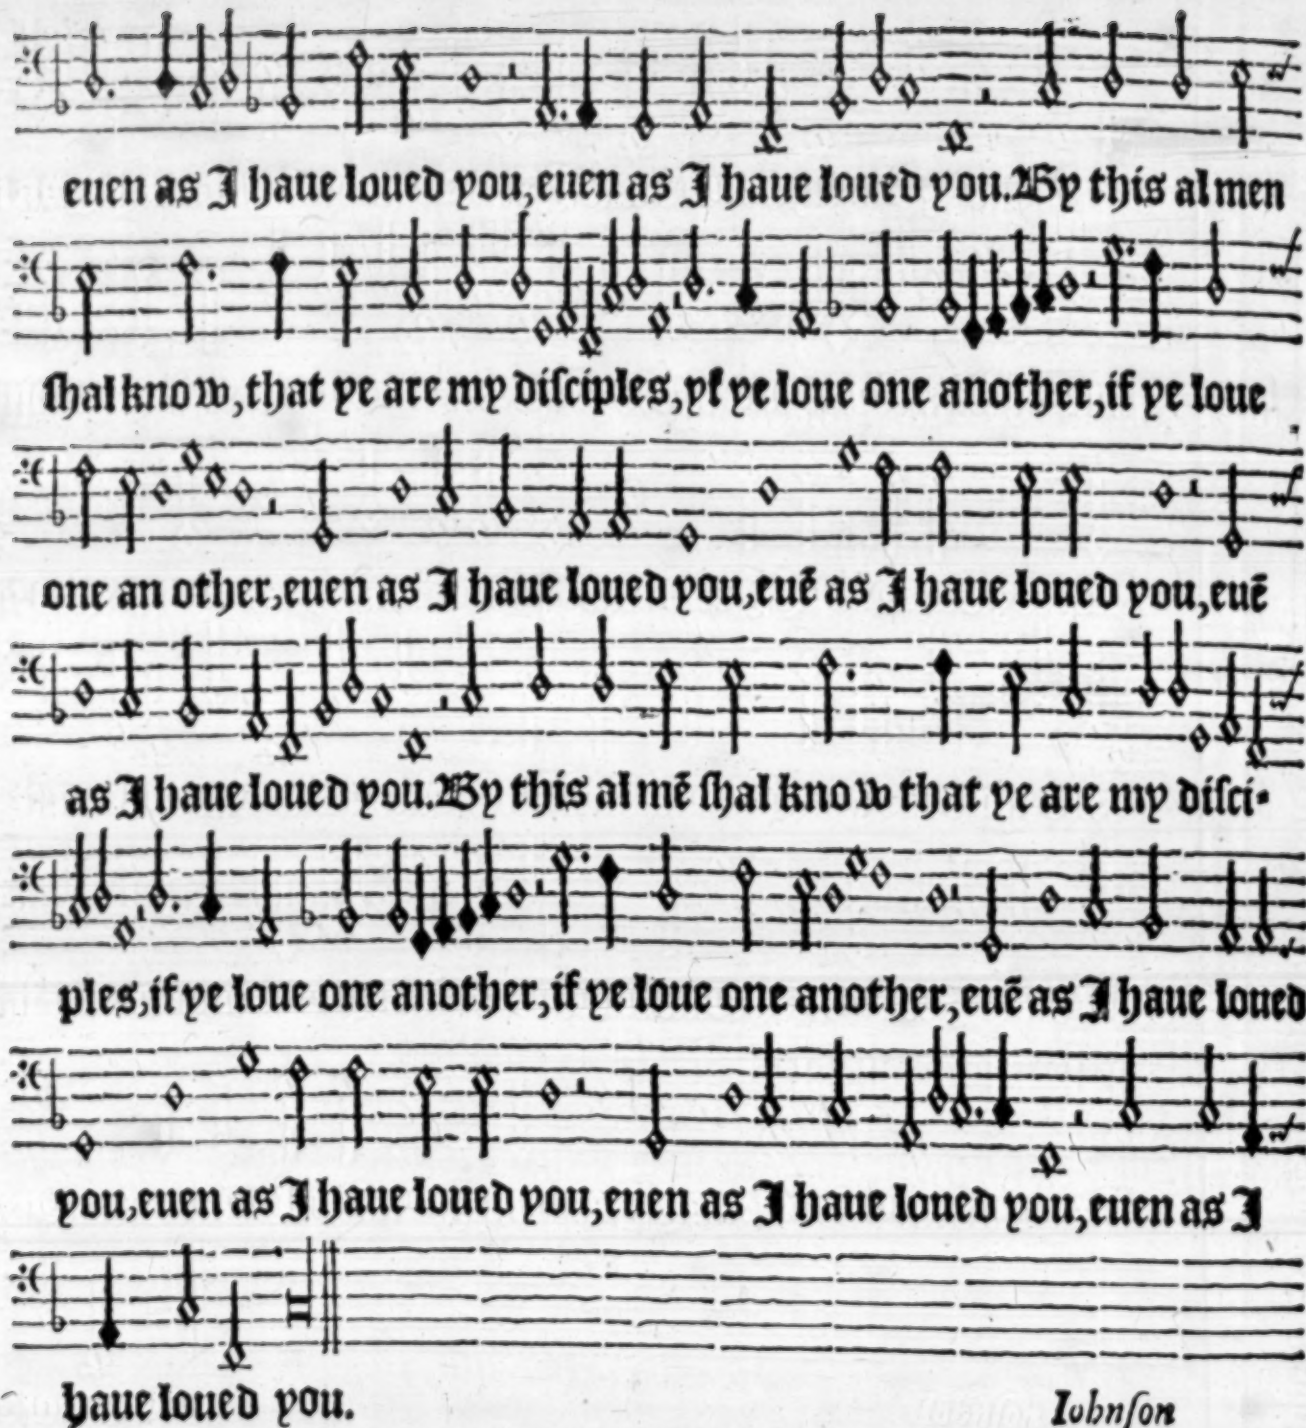 euen as I haue loued you,euen as I haue loued you.By this al men
ſhal know,that ye are my diſciples,yf ye loue one another,if ye loue
one an other,euen as I haue loued you,euē as I haue loued you,euē
as I haue loued you.By this al mē ſhal know that ye are my diſci-
ples,if ye loue one another,if ye loue one another,euē as I haue loued
you,euen as I haue loued you,euen as I haue loued you,euen as I
haue loued you.
Iohnſon